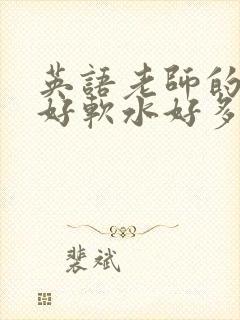 英語老師的
好軟水好多
裴斌